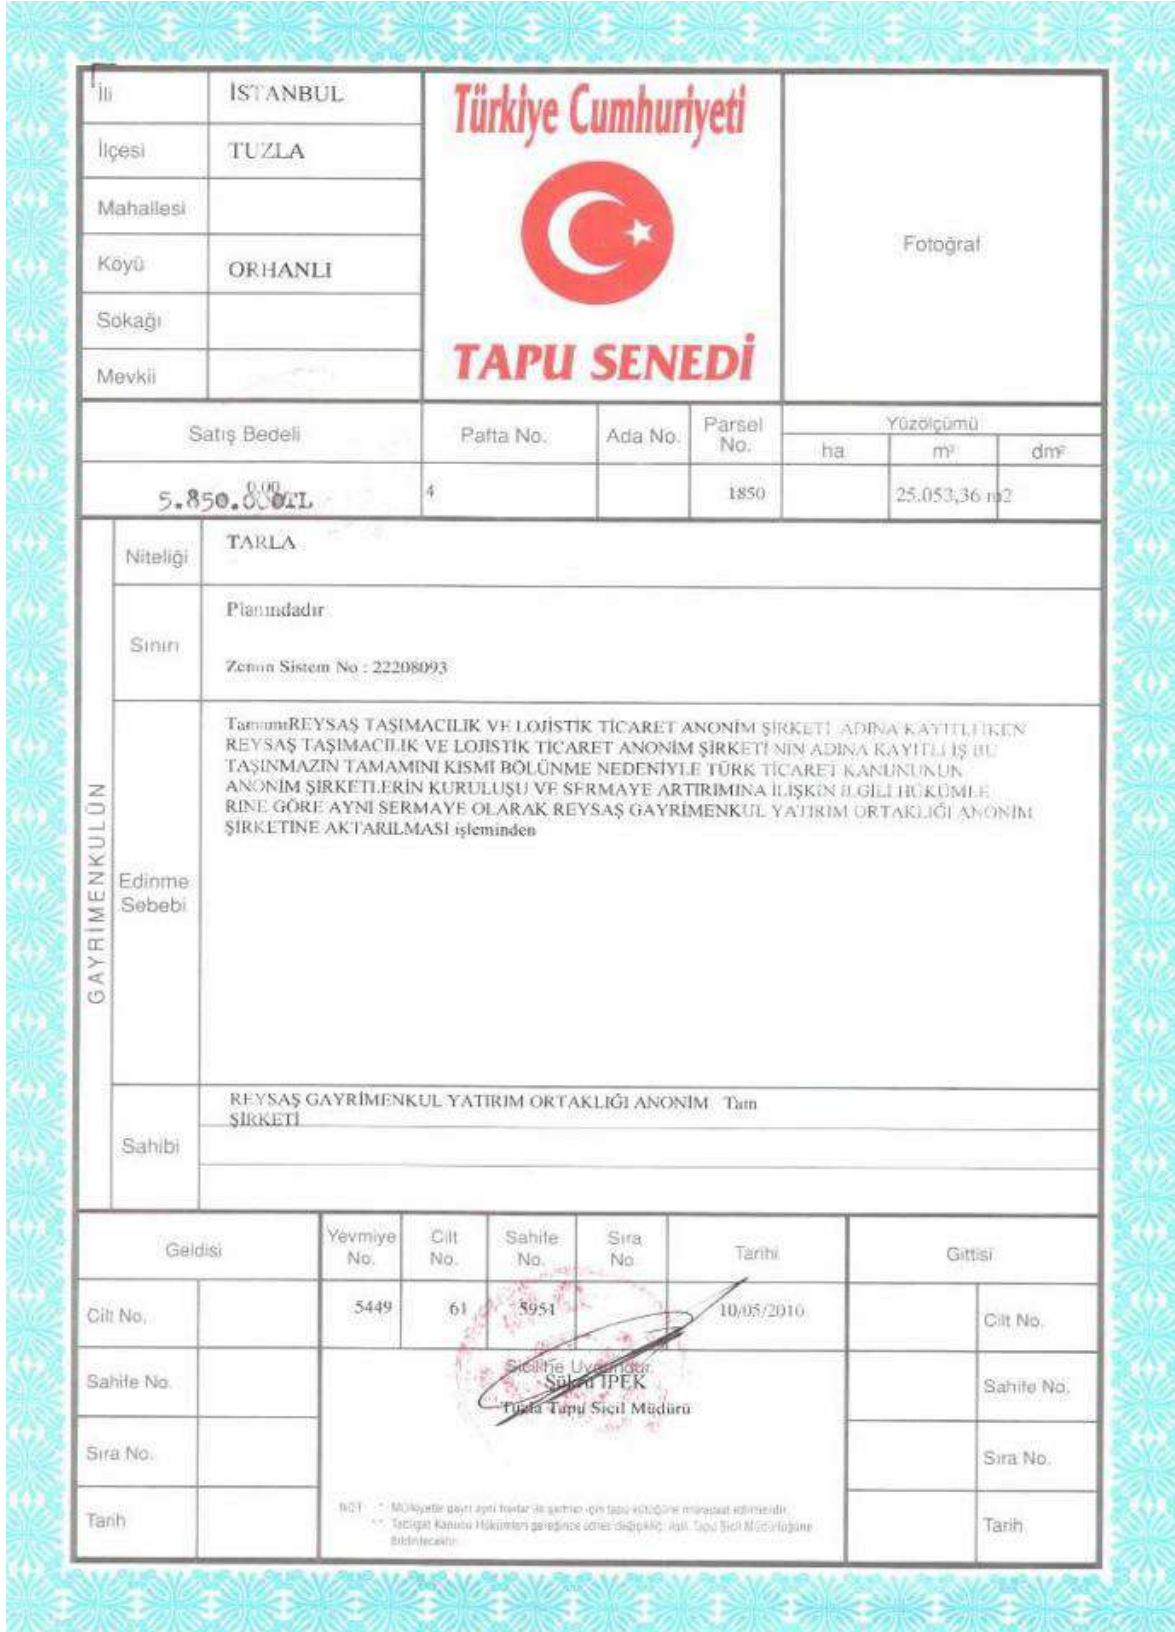 İli İSTANBUL
Türkiye Cumhuriyeti
İlçesi TUZLA
Mahallesi
Köyü ORHANLI
Fotoğraf
Sokağı
Mevkii
TAPU SENEDİ
Satış Bedeli Pafta No. Ada No. Parsel No. Yüzölçümü
ha m² dm²
0.00
5.850.000TL 4 1850 25.053,36 m2
GAYRİMENKULÜN
Niteliği TARLA
Sınırı Planındadır
Zemin Sistem No : 22208093
Edinme Sebebi
TamamıREYSAŞ TAŞIMACILIK VE LOJİSTİK TİCARET ANONİM ŞİRKETİ ADINA KAYITLI İKEN
REYSAŞ TAŞIMACILIK VE LOJİSTİK TİCARET ANONİM ŞİRKETİ NİN ADINA KAYITLI İŞ BU
TAŞINMAZIN TAMAMINI KISMİ BÖLÜNME NEDENİYLE TÜRK TİCARET KANUNUNUN
ANONİM ŞİRKETLERİN KURULUŞU VE SERMAYE ARTIRIMINA İLİŞKİN İLGİLİ HÜKÜMLE
RINE GÖRE AYNI SERMAYE OLARAK REYSAŞ GAYRİMENKUL YATIRIM ORTAKLIĞI ANONİM
ŞİRKETINE AKTARILMASI işleminden
Sahibi
REYSAŞ GAYRİMENKUL YATIRIM ORTAKLIĞI ANONİM Tam
ŞİRKETİ
Geldisi Yevmiye No. Cilt No. Sahife No. Sıra No. Tarihi Gittisi
Cilt No. 5449 61 5951 10/05/2010 Cilt No.
Siciline Uygundur.
Sahife No. Şükrü İPEK Sahife No.
Tuzla Tapu Sicil Müdürü
Sıra No. Sıra No.
NOT : * Mülkiyetle gayri ayni haklar ile şerhler için tapu kütüğüne müracaat edilmelidir.
** Tebligat Kanunu Hükümleri gereğince adres değişikliği ilgili Tapu Sicil Müdürlüğüne
Bildirilecektir.
Tarih Tarih